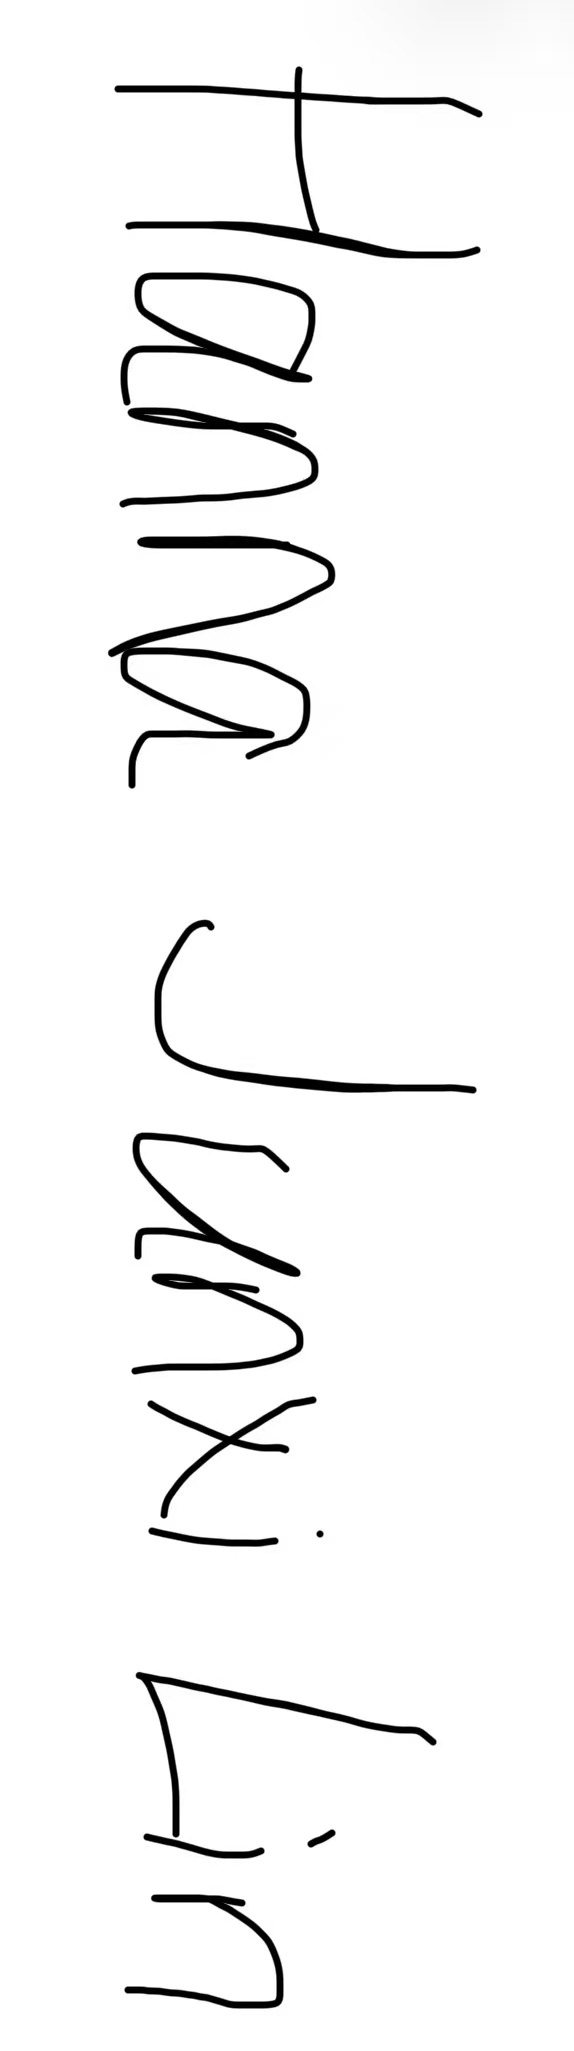 Hanna Junxi Lin